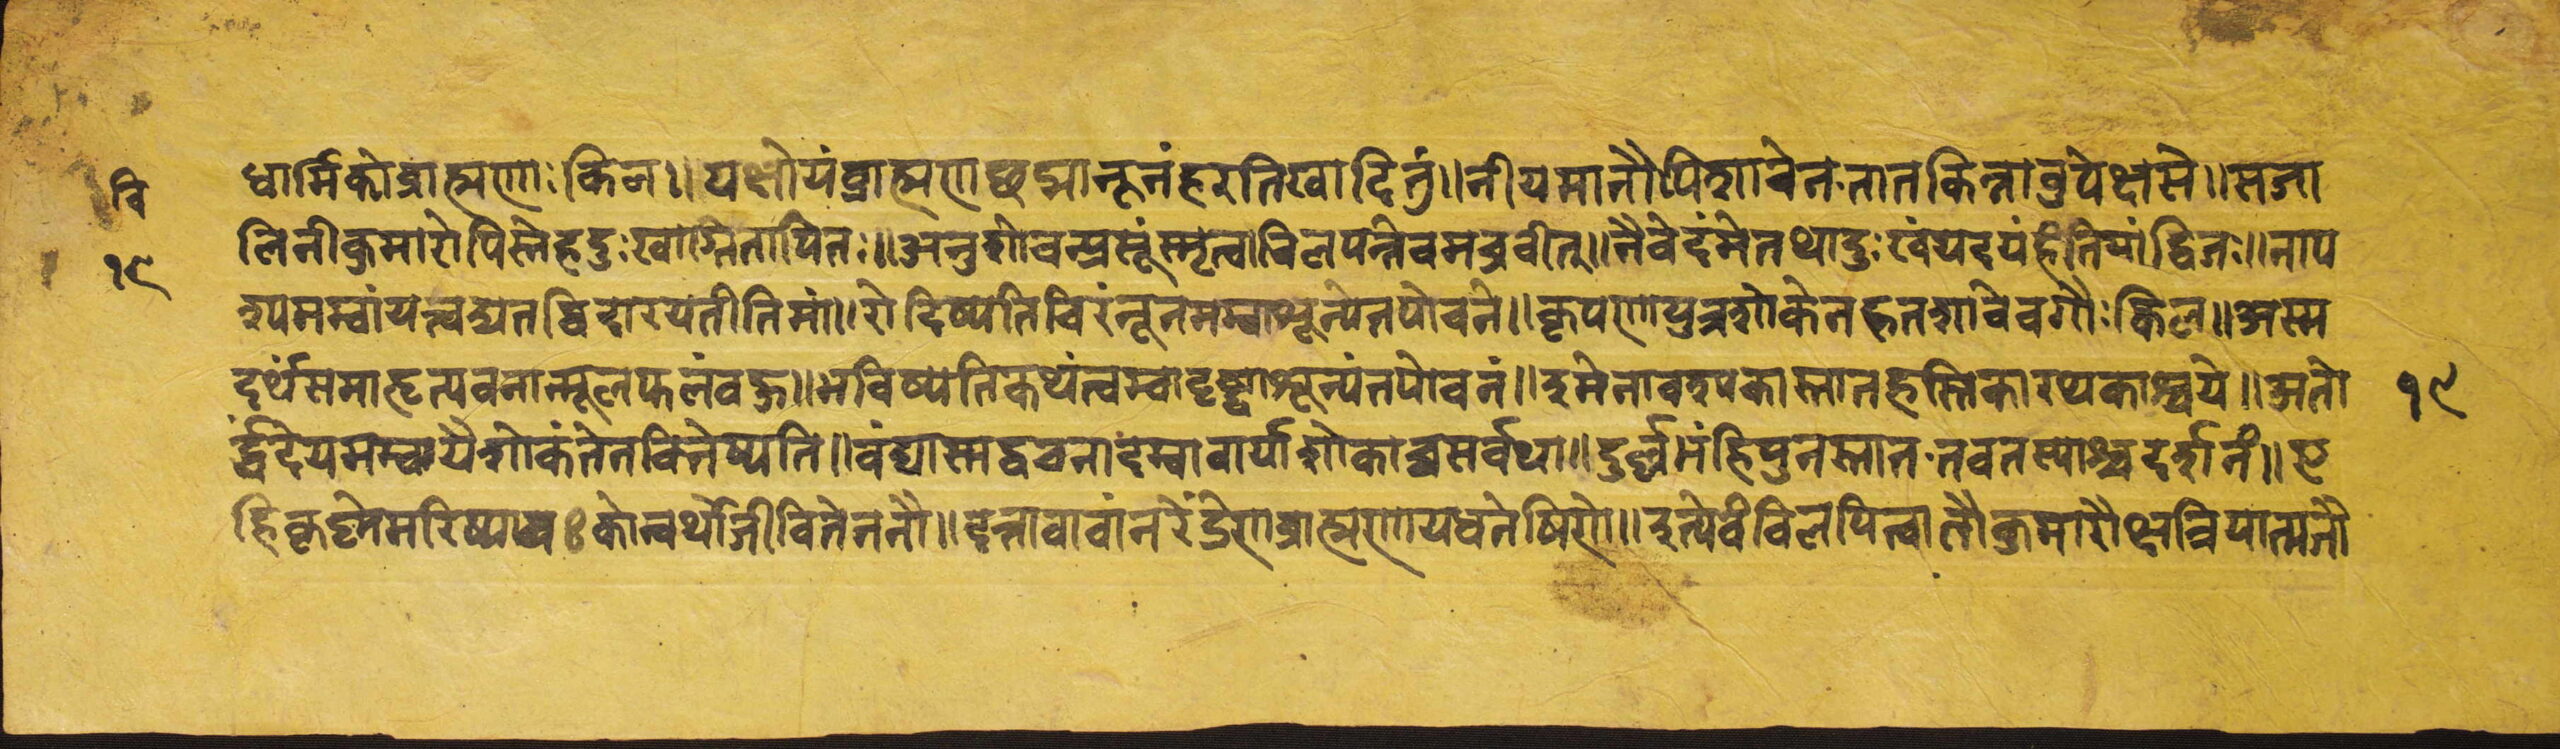 धार्मिकोब्राह्मणाःकिल॥यक्षोयंब्राह्मणछद्मानूनंहरतिखादितुं॥नीयमानौपिशाचेनतातकिन्नावुपेक्षसे॥सजा
वि
लिनीकुमारोपिस्नेहदुःखाग्नितापितः॥अनुशोचन्प्रसूंस्मृत्वाविलपन्नेवमब्रवीत्॥नैवेदंमेतथादुःखंयदयंहंतिमांद्विजः॥नाप
१९
श्यमम्वांयत्त्वद्यतद्विदारयतीतिमां॥रोदिष्यतिचिरंनूनमम्वाशून्येतपोवने॥कृपणापुत्रशोकेनहतशावेवगौःकिल॥अस्म
दर्थंसमाहृत्यवनान्मूलफलंवहु॥भविष्यतिकथंत्वम्वादृष्ट्वाशून्यंतपोवनं॥इमेनावश्वकास्तातहस्तिकारथकाश्चये॥अतो
१९
र्द्धंदेयमम्वायैशोकंतेनविनेष्यति॥वंद्यास्मद्वचनादम्वावार्याशोकाच्चसर्वथा॥दुर्ल्लभंहिपुनस्तात तवतस्याश्चदर्शनं॥ए
हिकृष्णेमरिष्यावः कोन्वर्थोजीवितेननौ॥दत्तावावांनरेंद्रेणब्राह्मणायधनैषिणे॥इत्येवंविलपित्वातौकुमारौक्षत्रियात्मजौ